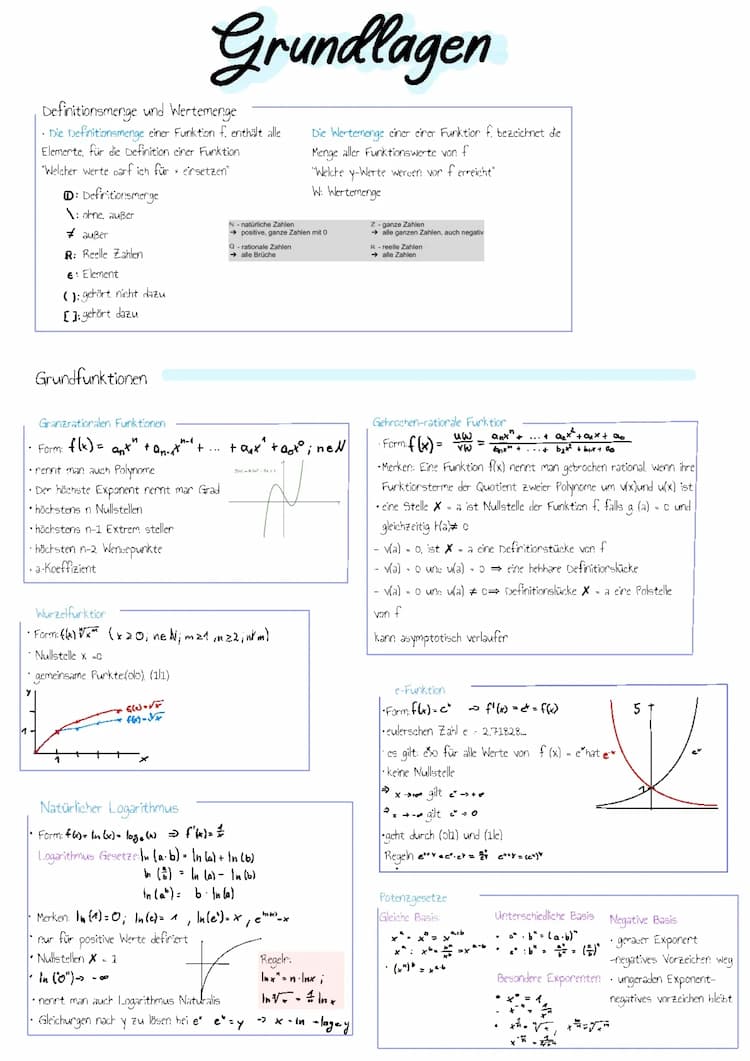 Grundlagen
Definitionsmenge und Wertemenge
· Die Definitionsmenge einer Funktion f, enthält alle
Elemente, für die Definition einer Funktion
"Welcher Werte darf ich für x einsetzen"
D: Definitionsmenge
\: ohne, außer
≠ außer
R: Reelle Zahlen
∈: Element
( ): gehört nicht dazu
[ ]: gehört dazu
Die Wertemenge einer einer Funktion f, bezeichnet die
Menge aller Funktionswerte von f
"Welche y-Werte werden von f erreicht"
W: Wertemenge
N - natürliche Zahlen
→ positive, ganze Zahlen mit 0
Z - ganze Zahlen
→ alle ganzen Zahlen, auch negativ
Q - rationale Zahlen
→ alle Brüche
R - reelle Zahlen
→ alle Zahlen
Grundfunktionen
Granzrationalen Funktionen
· Form: f(x) = aₙxⁿ + aₙ₋₁xⁿ⁻¹ + ... + a₁x¹ + a₀x⁰ ; n∈N
· nennt man auch Polynome
· Der höchste Exponent nennt man Grad
· höchstens n Nullstellen
· höchstens n-1 Extrem steller
· höchsten n-2 Wendepunkte
· a-Koeffizient
Gebrochen-rationale Funktion
· Form: f(x) = u(x)/v(x) =
· Merken: Eine Funktion f(x) nennt man gebrochen rational, wenn ihre
Funktionsterme der Quotient zweier Polynome um v(x)und u(x) ist
· eine Stelle X = a ist Nullstelle der Funktion f, falls g (a) = 0 und
gleichzeitig h(a)≠ 0
- v(a) = 0, ist X = a eine Definitionslücke von f
- v(a) = 0 und u(a) = 0 ⇒ eine hebbare Definitionslücke
- v(a) = 0 und u(a) ≠ 0 ⇒ Definitionslücke X = a eine Polstelle
von f
kann asymptotisch verlaufen
Wurzelfunktion
· Form: f(x) ⁿ√xᵐ (x≥0; n∈N; m≥1, n≥2; n≠m)
· Nullstelle x =0
· gemeinsame Punkte(0|0), (1|1)
y
1
1
x
e-Funktion
· Form: f(x) = eˣ ⇒ f'(x) = eˣ = f(x)
· eulerschen Zahl e = 2,71828...
· es gilt: eˣ>0 für alle Werte von f (x) = eˣ hat
· keine Nullstelle
⇒ x→∞ gilt eˣ→+∞
⇒ x→-∞ gilt eˣ→0
· geht durch (0|1) und (1|e)
Regeln
5
1
e⁻ˣ
eˣ
Natürlicher Logarithmus
· Form: f(x) = ln(x) = logₑ(x) ⇒ f'(x) = 1/x
Logarithmus Gesetze: ln(a·b) = ln(a) + ln(b)
ln(a/b) = ln(a) - ln(b)
ln(aᵇ) = b · ln(a)
· Merken: ln(1)=0; ln(e)= 1 , ln(eˣ)=x , e^ln(x)=x
· nur für positive Werte definiert
· Nullstellen X = 1
· ln("0")→ -∞
· nennt man auch Logarithmus Naturalis
· Gleichungen nach y zu lösen bei eˣ eˣ=y → x = ln = logₑy
Regeln:
ln xⁿ = n · ln x ;
ln ⁿ√x = 1/n ln x
Potenzgesetze
Gleiche Basis:
Unterschiedliche Basis
Besondere Exponenten
· x⁰ = 1
Negative Basis
· gerader Exponent
-negatives Vorzeichen weg
· ungeraden Exponent-
negatives vorzeichen bleibt